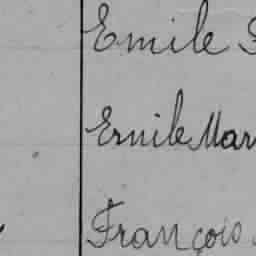 Emile
Emile Mar
François